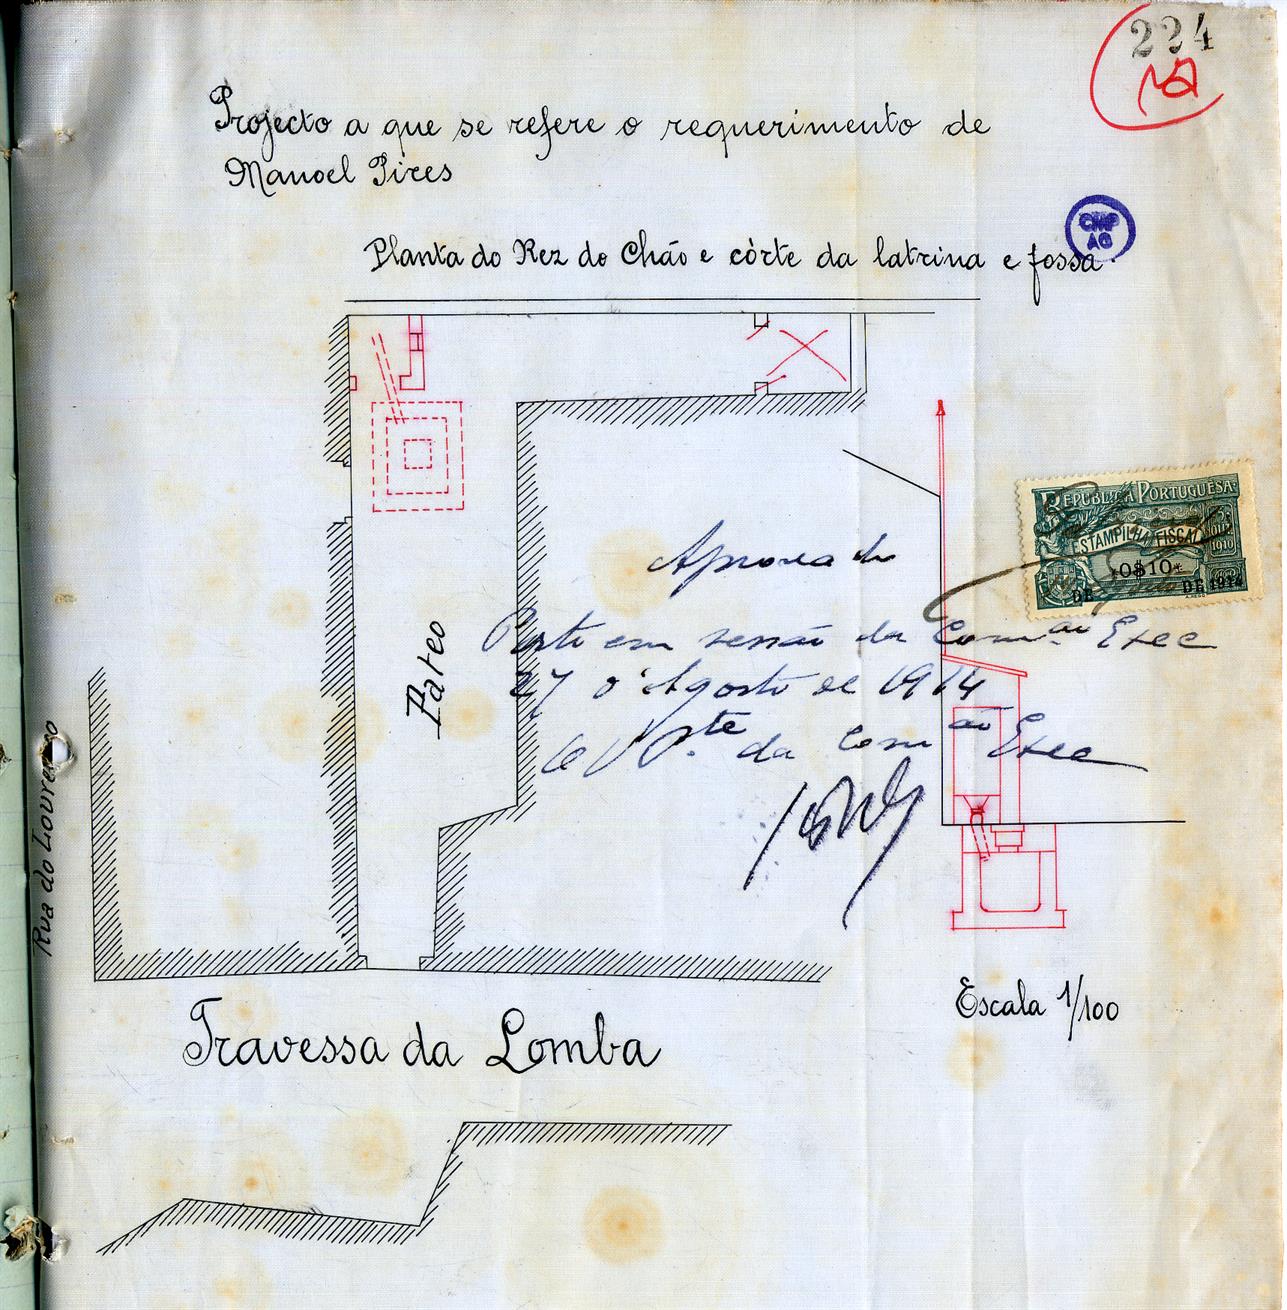 224
Projecto a que se refere o requerimento de
Manoel Pires
CMP
AG
Planta do Rez do Chão e córte da latrina e fossa
REPUBLICA PORTUGUESA
ESTAMPILHA FISCAL
1910
0$10
DE
DE 1914
Aprovado
Porto em sessão da Comᵃᵒ Exec
27 d'Agosto de 1914
O V Pᵗᵉ da Comᵃᵒ Exec
Pateo
Rua do Loureiro
Escala 1/100
Travessa da Lomba